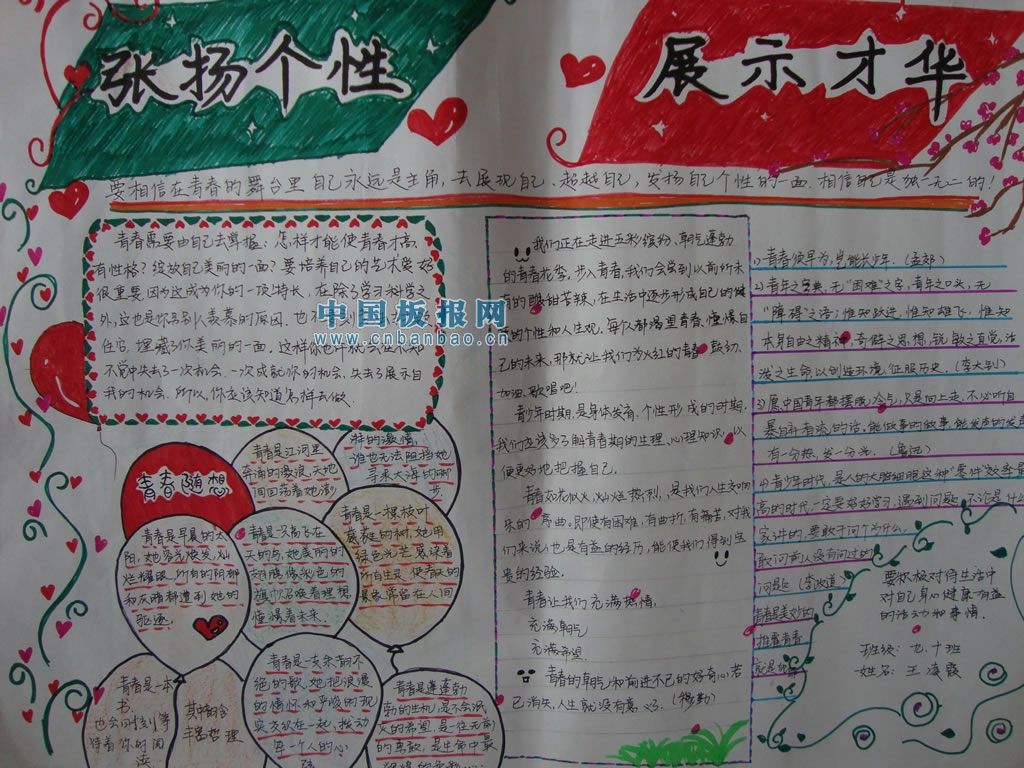 张扬个性
展示才华
要相信在青春的舞台里自己永远是主角,去展现自己、超越自己,发扬自己个性的一面.相信自己是独一无二的!
青春需要由自己去掌握:怎样才能使青春才高、
有性格?绽放自己美丽的一面?要培养自己的艺术爱好
很重要.因为这成为你的一项特长,在除了学习科学之
外,这也是你另别人羡慕的原因.也
住它.埋藏了你美丽的一面.这样你
不觉中失去了一次机会.一次成就你的机会.失去了展示自
我的机会.所以,你应该知道怎样去做.
中国板报网
www.cnbanbao.cn
青春随想
青春是江河里
奔涌的激浪,天地
间回荡着她澎
湃的激情,
谁也无法阻挡她
寻来大海的脚
步.
青春是早晨的太
阳,她容光焕发,灿
烂耀眼,所有的阴郁
和灰暗都遭到她的
驱逐.
青春是只高飞在
天的鸟,她美丽的
翅膀像彩色的
旗巾召唤着理想
憧憬着未来.
青春是一棵枝叶
茂盛的树,她用
绿色光芒
所有生灵,使春天的
景象常留在人间
青春是一本
书.
也会问候到等
待着你的阅
读
其中的含
丰富哲理
青春是一支余韵不
绝的歌,她把浪漫
的情怀和严峻的现
实交织在一起,拨动
每一个人的心
弦
青春是蓬蓬勃
勃的生机,是不会泯
灭的希望,是一往无前
的勇敢,是生命中最
辉煌的色彩……
我们正在走进五彩缤纷、朝气蓬勃
的青春花季,步入青春,我们会尝到以前所未
有的酸甜苦辣,在生活中逐步形成自己的健
康的个性和人生观,每人都渴望青春,憧憬自
己的未来,那就让我们为火红的青春 鼓劲、
加油、歌唱吧!
青少年时期,是身体发育、个性形成的时期.
我们应该多了解青春期的生理、心理知识,以
便更好地把握自己.
青春如花似火,灿烂热烈,是我们人生交响
乐的 章曲,即使有困难,有曲折,有痛苦,对我
们来说,也是有益的经历,能使我们得到宝
贵的经验.
青春让我们充满热情.
充满朝气
充满希望.
青春的朝气和向进不已的好奇心若
已消失,人生就没有意义了.(穆勒)
1)青春须早为,岂能长少年.(孟郊)
2)青年之字典,无"困难"之字,青年之口头,无
"障碍"之语;惟知跃进,惟知雄飞,惟知
本身自由之精神,奇僻之思想,锐敏之直觉,活
泼之生命,以创造环境,征服历史.(李大钊)
3)愿中国青年都摆脱冷气,只是向上走,不必听自
暴自弃者流的话,能做事的做事,能发声的发声
有一分热,发一分光.(鲁迅)
4)青少年时代,是人的大脑细胞这种"零件"效率最
高的时代,一定要好好学习,遇到问题,不论是什么
家讲的,要敢于问个为什么,
敢问前人没有问过的
问题.(李政道)
青春是美妙的
挥霍青春
就是犯罪
要积极对待生活中
对自己身心健康有益
的活动和事情.
班级:七、十班
姓名:王凌霞